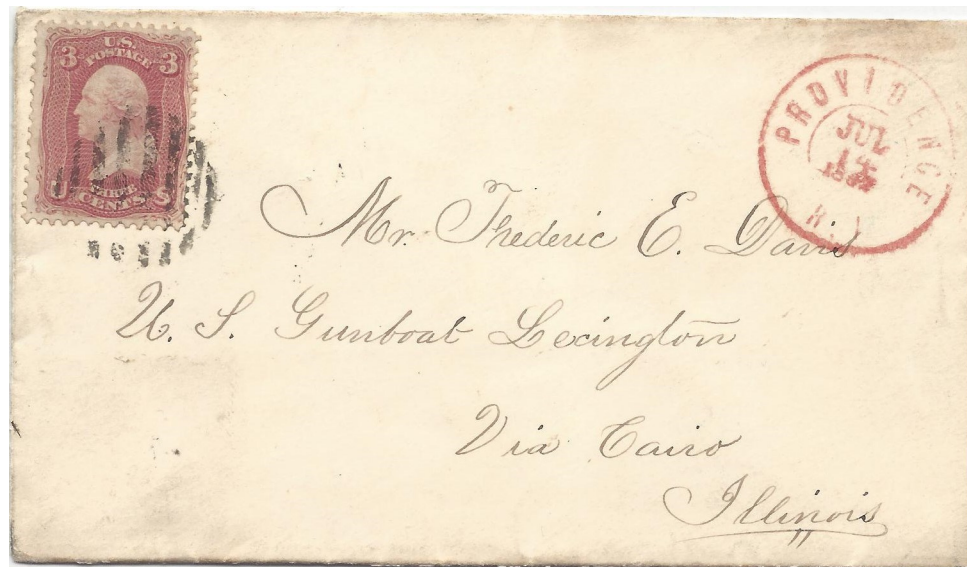 3 U.S. POSTAGE 3
U THREE CENTS S
PROVIDENCE
JUL
R.I.
Mr. Frederic E. Davis
U. S. Gunboat Lexington
Via Cairo
Illinois